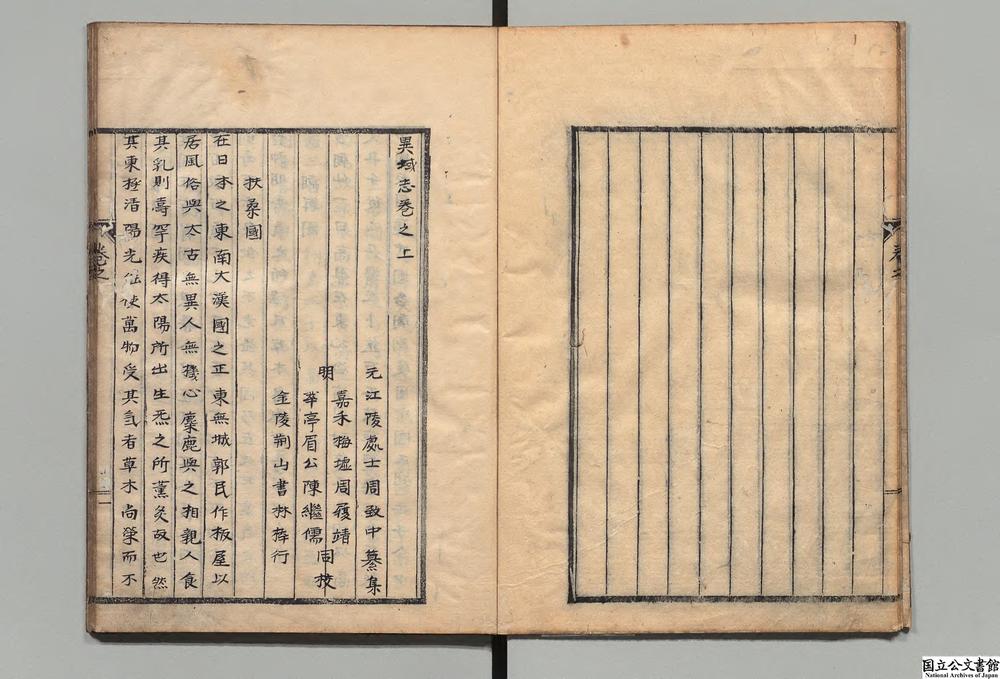 異域志卷之上
元江陵處士周致中纂集
明
嘉禾梅墟周履靖
華亭眉公陳繼儒
同校
金陵荊山書林梓行
扶桑國
在日本之東南大漢國之正東無城郭民作板屋以
居風俗與太古無異人無機心麋鹿與之相親人食
其乳則壽罕疾得太陽所出生炁之所薰炙故也然
其東極清陽光能使萬物受其氣者草木尚榮而不
卷之
国立公文書館
National Archives of Japan